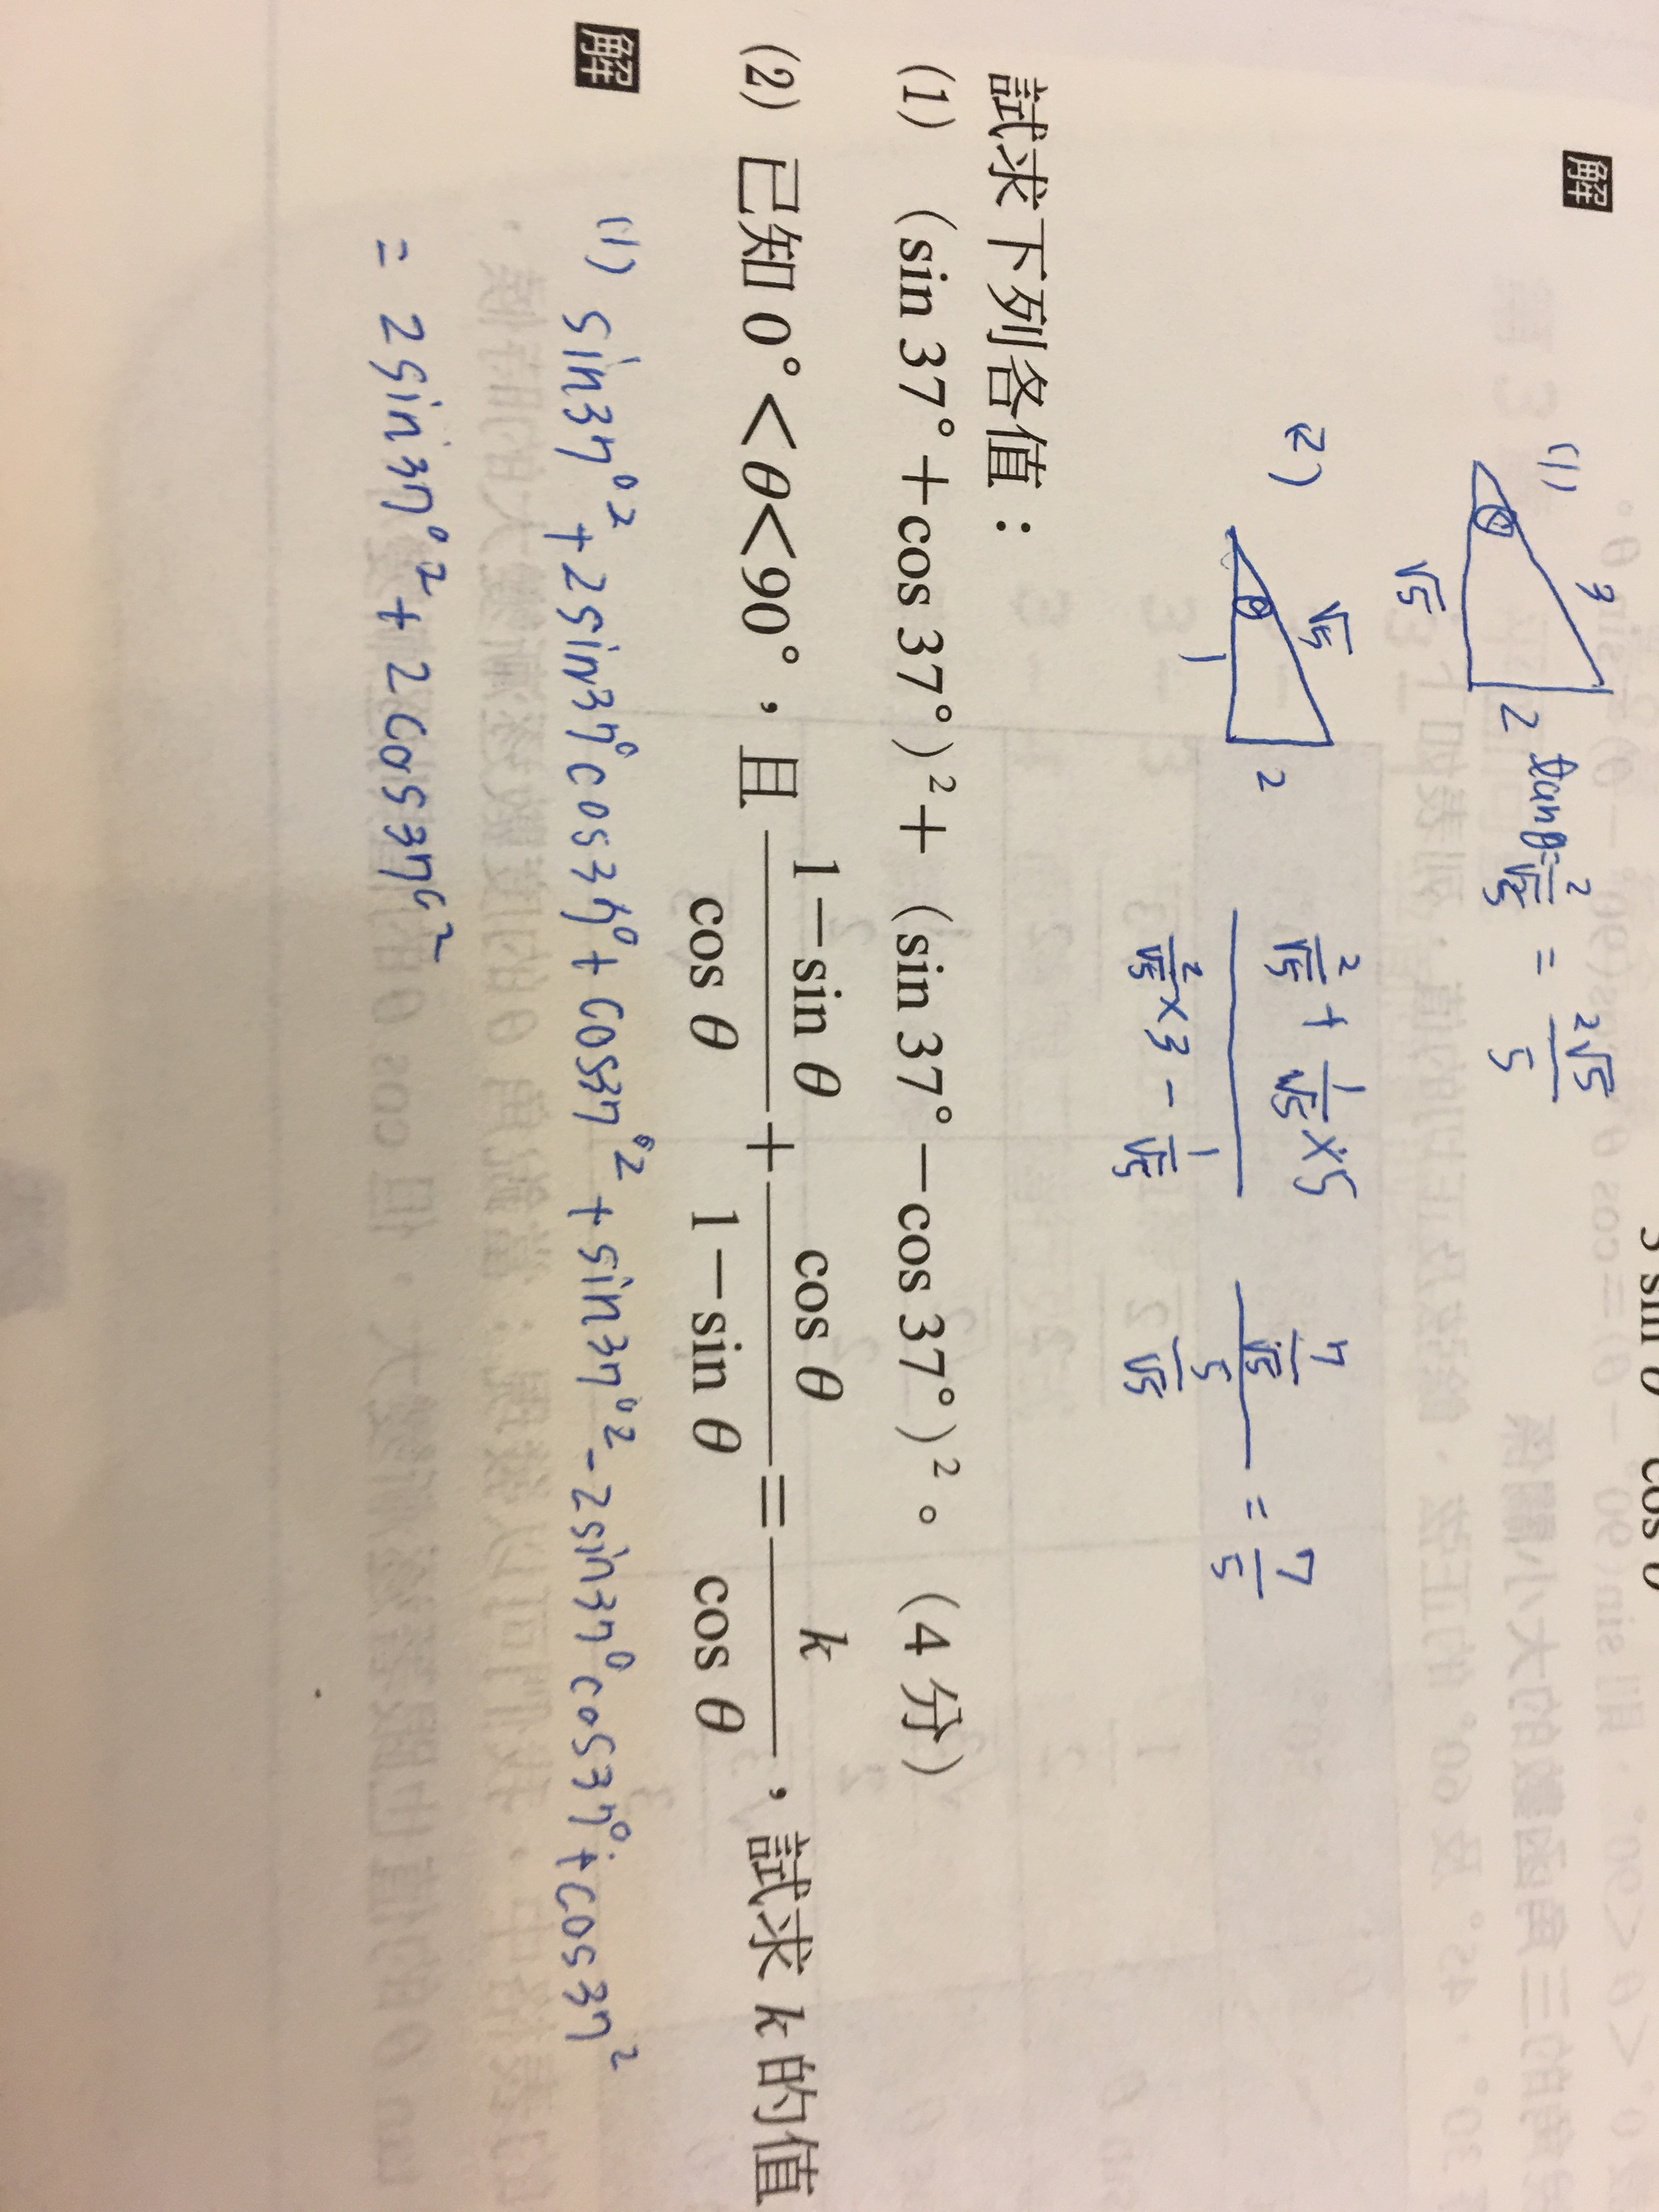 3 sin θ cos θ
解
(1) 3 √5 2 tanθ=2/√5 = 2√5/5
(2) √5 1 2 (2/√5 + 1/√5×5)/(2/√5×3 - 1/√5) (7/√5)/(5/√5) = 7/5
試求下列各值：
(1) (sin 37°+cos 37°)²+(sin 37°−cos 37°)²。(4 分)
(2) 已知 0°<θ<90°，且 (1−sin θ)/cos θ + cos θ/(1−sin θ) = k/cos θ，試求 k 的值
解
(1) sin37°² + 2sin37°cos37° + cos37°² + sin37°² - 2sin37°cos37° + cos37²
= 2sin37°² + 2cos37°²